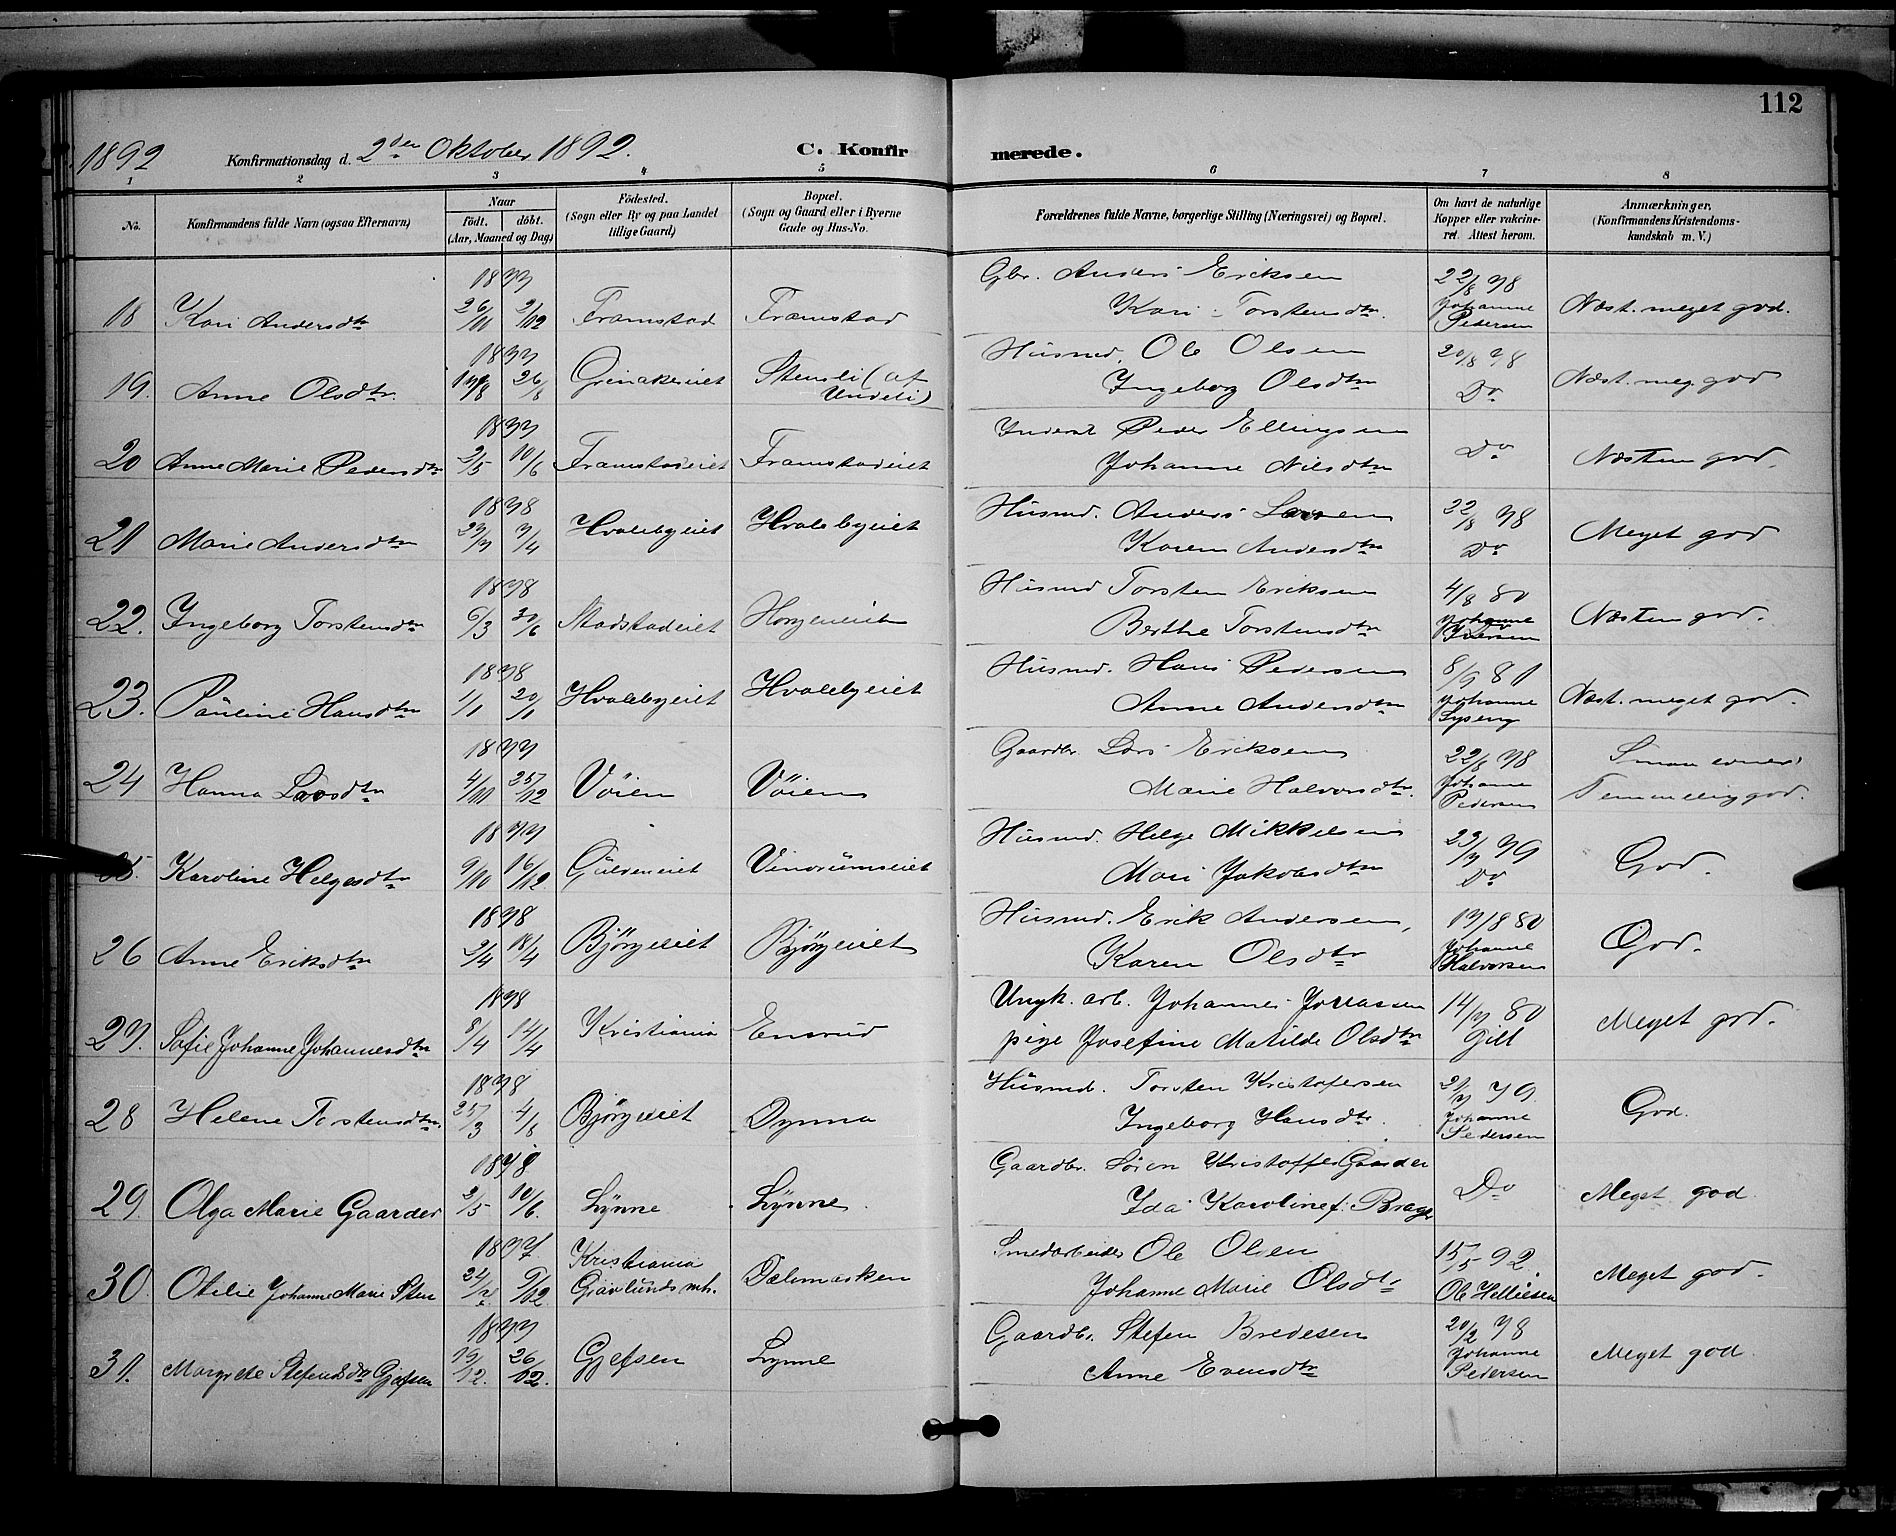 112
1892 Konfirmationsdag d. 2den Oktober 1892. C. Konfirmerede.
1 2 3 4 5 6 7 8
No. Konfirmandens fulde Navn (ogsaa Efternavn) Naar født. døbt. (Aar, Maaned og Dag) Födested. (Sogn eller By og paa Landet tillige Gaard) Bopæl. (Sogn og Gaard eller i Byerne Gade og Hus-No. Forældrenes fulde Navne, borgerlige Stilling (Næringsvei) og Bopæl. Om havt de naturlige Kopper eller vakcineret. Attest herom. Anmærkninger. (Konfirmandens Kristendomskundskab m. V.)
1877 Gbr. Anders Eriksen 22/8 78
18 Kari Andersdtr 26/11 2/12 Framstad Framstad Kari Torstensdtr. Johanne Pedersen Næst. meget god.
1877 Husmd. Ole Olsen 20/8 78
19. Anne Olsdtr. 26/8 Grinakereiet Stensli (af Undeli) Ingeborg Olsdtr Do Næst. meg. god
1877 Inderst Peder Ellingsen
20 Anne Marie Pedersdtr 2/5 10/6 Framstadeiet Framstadeiet Johanne Nilsdtr Do Næsten god.
1878 Husmd. Anders Larsen 22/8 78
21 Marie Andersdtr 7/4 Hvalebyeiet Hvalebyeiet Karen Andersdtr Do Meget god
1878 Husmd Torsten Eriksen 4/8 80
22. Ingeborg Torstensdtr 6/3 30/6 Madstadeiet Horgeneiet Berthe Torstensdtr Johanne Næsten god.
1878 Husmd. Hans Pedersen 8/9 81
23. Pauline Hansdtr 1/1 20/1 Hvalebyeiet Hvalebyeiet Anne Andersdtr Johanne Lyseng Næst. meget god.
1877 Gaardbr. Lars Eriksen 22/8 78
24 Hanna Larsdtr 4/11 25/12 Vøien Vøien Marie Halvorsdtr. Johanne Pedersen Smaa evner Temmelig god.
1877 Husmd. Helge Mikkelsen 23/7 79
25. Karoline Helgesdtr 9/10 16/12 Guldeneiet Vindrumseiet Mari Jakobsdtr Do God.
1878 Husmd. Erik Andersen, 17/8 80
26 Anne Eriksdtr 2/4 18/4 Bjørgeeiet Bjørgeeiet Karen Olsdtr Johanne Halvorsen God.
1878 Ungk. arb. Johannes Jonassen 14/7 80
27. Sofie Johanne Johannesdtr 8/4 14/4 Kristiania Ensrud pige Josefine Matilde Olsdtr Gill Meget god.
1878 Husmd. Torsten Kristofersen 21/7 79
28 Helene Torstensdtr. 25/3 4/8 Bjørgeeiet Dynna Ingeborg Hansdtr. Johanne Pedersen God.
1878 Gaardbr. Søren Kristoffer Gaarder
29. Olga Marie Gaarder 2/5 10/6. Lynne Lynne Ida Karoline f: Brager Do Meget god
1877 Kristiania Smedarbeider Ole Olsen 15/5 92.
30. Otilie Johanne Marie Sten 9/12 Grønlunds mh. Dælemarken Johanne Marie Olsdtr Ole Helliesen Meget god.
1877 Gaardb. Stefen Bredesen 20/2 78
31. Margrete Stefensdtr Gjefsen 19/12. 26/12. Gjefsen Lynne Anne Evensdtr Johanne Pedersen Meget god.